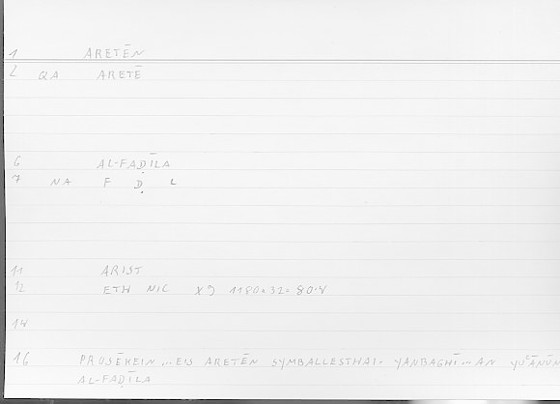 1 ARETĒN
2 QA ARETĒ
6 AL-FAḌĪLA
7 NA F Ḍ L
11 ARIST
12 ETH NIC X 9 1180a32-80.8
14
16 PROSĒKEIN ... EIS ARETĒN SYMBALLESTHAI - YANBAGHĪ - AN
AL-FAḌĪLA